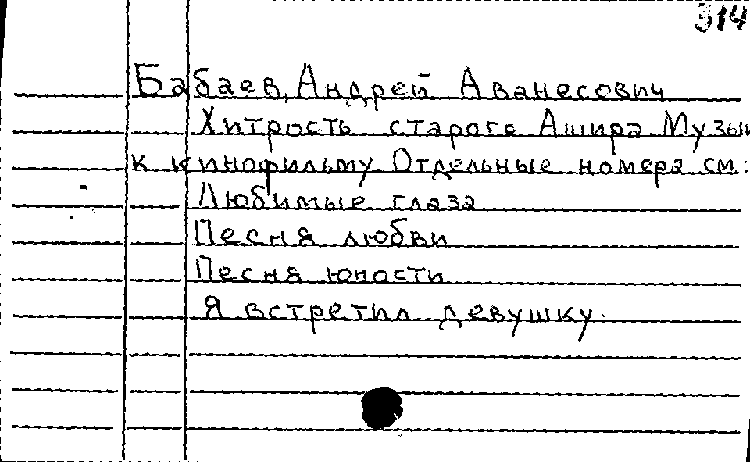 314
Бабаев, Андрей Аванесович
Хитрость старого Ашира Музы
к кинофильму Отдельные номера см:
Любимые глаза
Песня любви
Песня юности
Я встретил девушку.